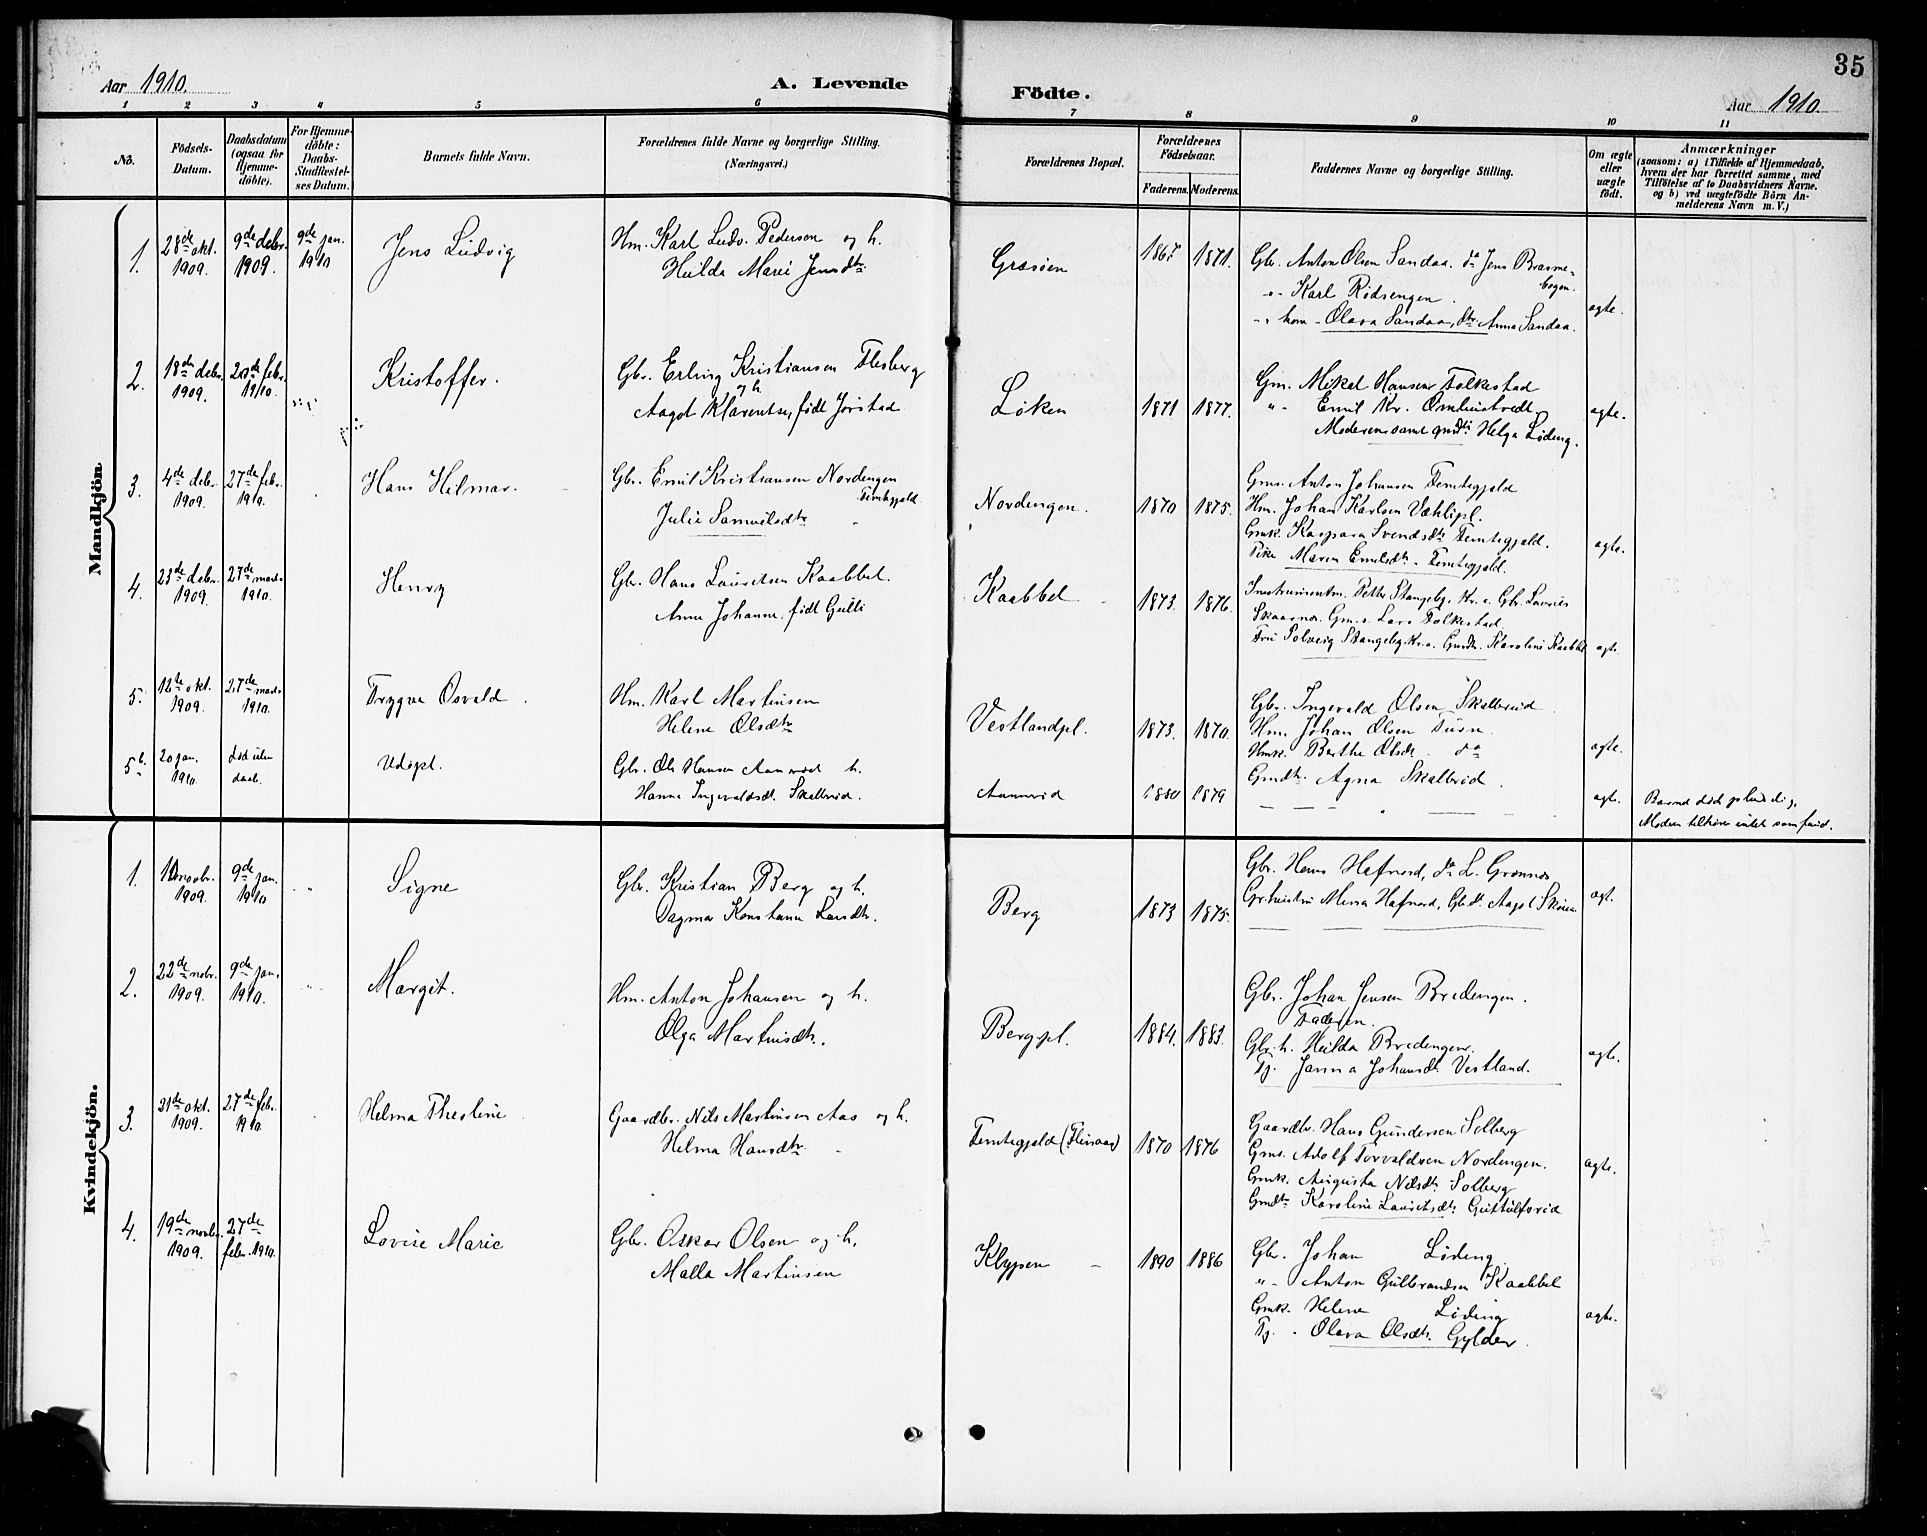 35
Aar 1910.
A. Levende Födte.
Aar 1910.
1 2 3 4 5 6 7 8 9 10 11
No.
Födsels-Datum.
Daabsdatum (ogsaa for Hjemme-döbte).
For Hjemme-döbte: Daabs-Stadfæstel-ses Datum.
Barnets fulde Navn.
Forældrenes fulde Navne og borgerlige Stilling.
(Næringsvei.)
Forældrenes Bopæl.
Forældrenes Födselsaar.
Faderens. Moderens.
Faddernes Navne og borgerlige Stilling.
Om ægte eller uægte født.
Anmærkninger
(saasom: a) i Tilfælde af Hjemmedaab,
hvem der har forrettet samme, med
Tilföielse af to Daabsvidners Navne,
og b) ved uægtefödte Börn An-
melderens Navn m. V.)
Mandkjön
1. 28de okt. 1909. 9de debr. 1909. 9de jan. 1910 Jens Ludvig
Hm. Karl Ludv. Pedersen og h.
Hulda Marie Jensdtr
Græsöen 1867. 1871.
Gbr. Anton Olsen Sandaa. do Jens
Karl Rödsengen.
kone Olava Sandaa, dtr. Anna Sandaa.
ægte.
2. 18de debr. 1909. 20de febr. 1910. Kristoffer.
Gbr. Erling Kristiansen Flesberg
og h
Aagot Klarentse, født Jørstad
Løken 1871 1877.
Gm. Mikal Hansen Folkestad
" Emil Kr.
Moderen samt Helga Løding.
ægte.
3. 4de debr. 1909. 27de febr. 1910. Hans Hilmar.
Gbr. Emil Kristiansen Nordengen
Femtegjeld
Julie Samuelsdtr
Nordengen. 1870 1875.
Gms. Anton Johansen Femtegjeld
Hm. Johan Karlsen Væhlipl.
Gmk. Kaspara Svendsdtr Femtegjeld.
Pike Maren Emilsdtr. Femtegjeld.
ægte.
4. 23de debr. 1909. 27de mars 1910. Henry
Gbr. Hans Lauritsen Kaabbel.
Anne Johanne, født Gulli
Kaabbel 1873. 1876.
Instrumentm. Petter Stangeby. Kr.a. Gbr. Lauris
Skaarnes. Gm.s. Lars Folkestad
Fru Solveig Stangeby Kr.a. Gmdtr. Karoline Kaabbel
ægte.
5. 12te okt. 1909. 27de mars 1910. Trygve Osvald.
Hm. Karl Martinsen
Helene Olsdtr
Vestlandpl. 1873. 1870.
Gbr. Ingevald Olsen Skallerud
Hm. Johan Olsen
Hmk. Berthe Olsdtr. do
Gmdtr. Agna Skallerud.
ægte.
5b 20 jan. 1910. død uden daab. Udøpt.
Gbr. Ole Hansen Aannerød h.
Hanna Ingevaldsdtr. Skallerud.
Aannerud 1880 1879
ægte.
Barnet død pludselig,
Moderen tilhører intet samfund.
Kvindekjön.
1. 10 novbr. 1909. 9de jan. 1910 Signe
Gbr. Kristian Berg og h.
Dagma Konstance Larsdtr.
Berg 1873 1875.
Gbr. Hans Hafnord, do L. Grønnes
Gbr.hustru Mina Hafnord, Gbdtr. Aagot Skøien
ægt.
2. 22de nobr. 1909. 9de jan. 1910. Margit.
Hm. Anton Johansen og h.
Olga Martinsdtr.
Bergspl. 1884. 1883.
Gbr. Johan Jensen Bredengen.
Faderen.
Gbr.h. Hulda Bredengen.
Pj. Janna Johansdtr Vestland.
ægte.
3. 21de okt. 1909. 27de febr. 1910. Helma Theoline
Gaardbr. Nils Martinsen Aas og h.
Helma Hansdtr.
Femtegjeld (Flensaas) 1870 1876
Gaardbr. Hans Gundersen Solberg
Gms. Adolf Torvaldsen Nordengen.
Gmk. Augusta Nilsdtr. Solberg
Gmdtr Karoline Lauritsdtr. Guttulsrød
ægte.
4. 19de novbr. 1909. 27de febr. 1910. Lovise Marie
Gbr. Oskar Olsen og h.
Malla Martinsen
Klypen 1890 1886
Gbr. Johan Løding.
" Anton Gulbrandsen Kaabbel
Gmk. Helene Løding
Pj. Olava Olsdtr. Gylder.
ægte.